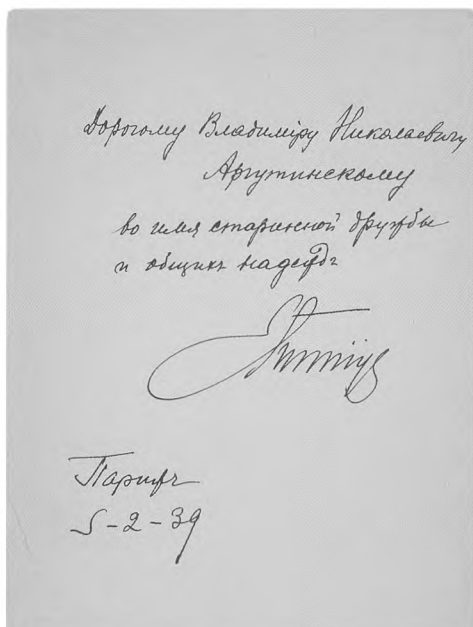 Дорогому Владиміру Николаевичу
Аргутинскому
во имя старинной дружбы
и общихъ надеждъ
Парижъ
5-2-39